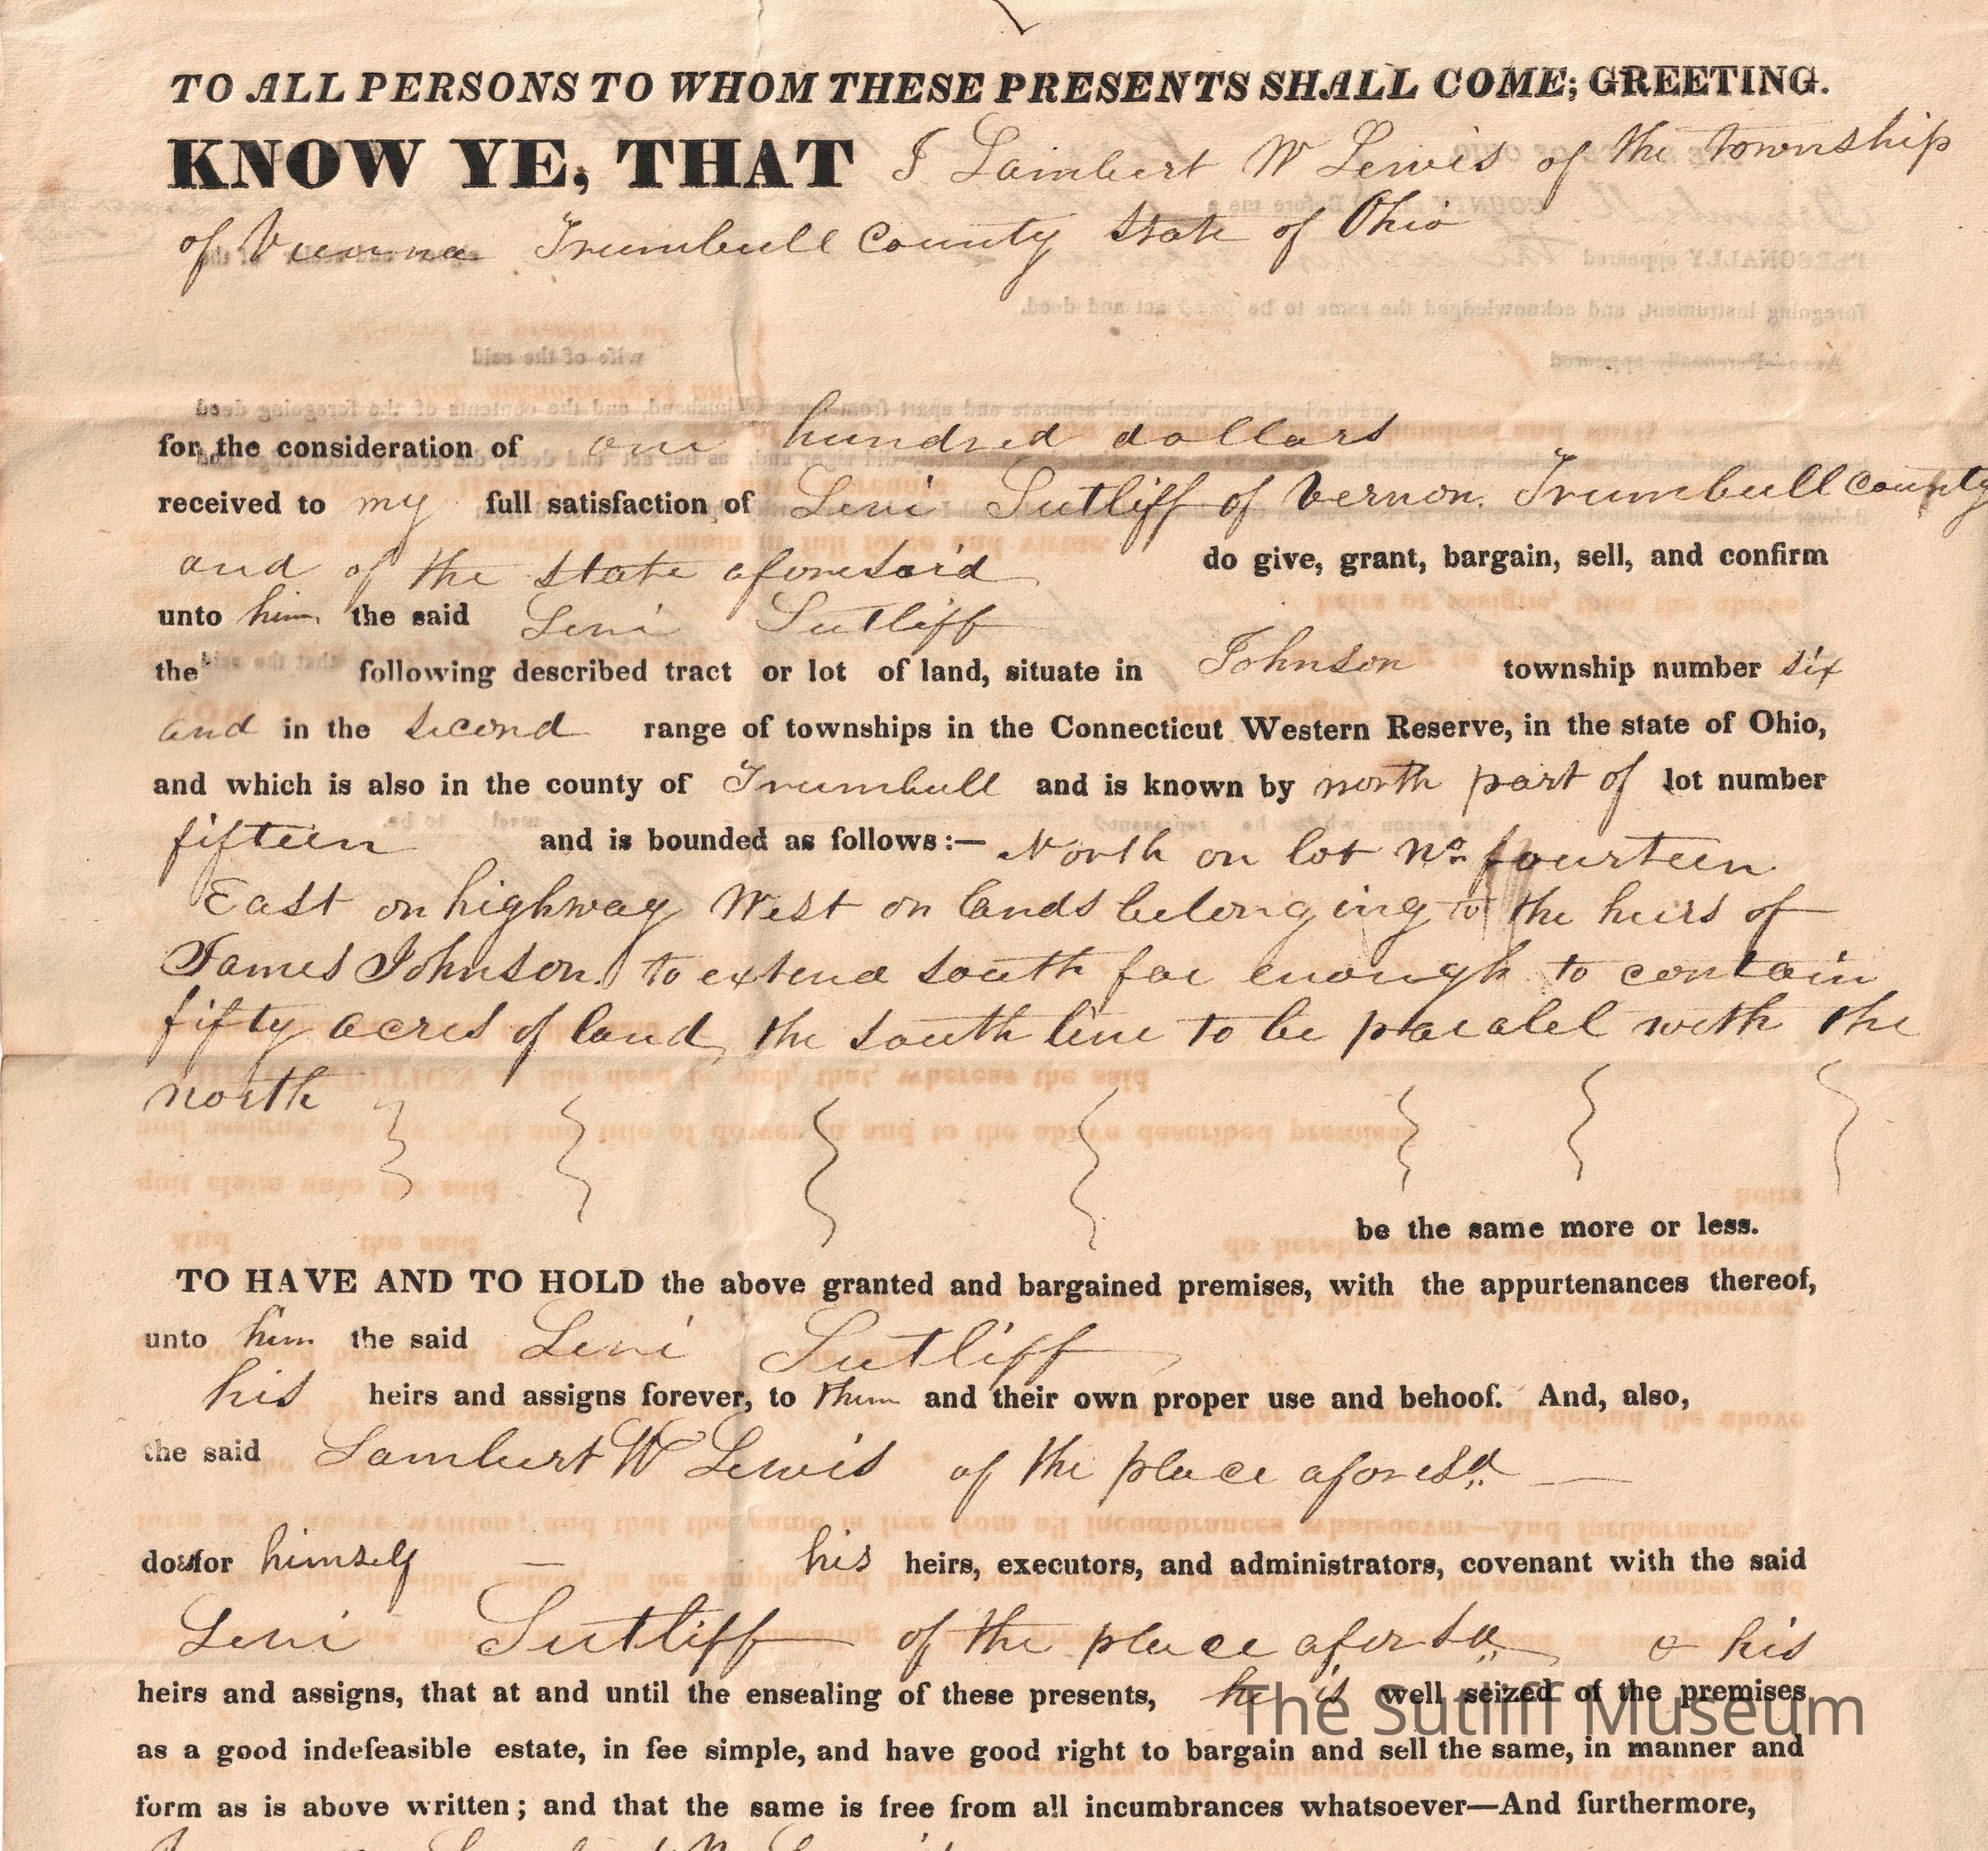 TO ALL PERSONS TO WHOM THESE PRESENTS SHALL COME; GREETING.
KNOW YE, THAT I Lambert W Lewis of the township
of Vienna Trumbull County State of Ohio
for the consideration of one hundred dollars
received to my full satisfaction of Levi Sutliff of Vernon. Trumbull County
and of the state aforesaid do give, grant, bargain, sell, and confirm
unto him the said Levi Sutliff
the following described tract or lot of land, situate in Johnson township number six
and in the second range of townships in the Connecticut Western Reserve, in the state of Ohio,
and which is also in the county of Trumbull and is known by north part of lot number
fifteen and is bounded as follows:— North on lot No. fourteen
East on highway West on lands belonging to the heirs of
James Johnson. to extend south far enough to contain
fifty acres of land, the south line to be paralel with the
north
be the same more or less.
TO HAVE AND TO HOLD the above granted and bargained premises, with the appurtenances thereof,
unto him the said Levi Sutliff
his heirs and assigns forever, to them and their own proper use and behoof. And, also,
the said Lambert W Lewis of the place aforesd —
does for himself — his heirs, executors, and administrators, covenant with the said
Levi Sutliff of the place aforsd & his
heirs and assigns, that at and until the ensealing of these presents, he is well seized of the premises
The Sutliff Museum
as a good indefeasible estate, in fee simple, and have good right to bargain and sell the same, in manner and
form as is above written; and that the same is free from all incumbrances whatsoever—And furthermore,